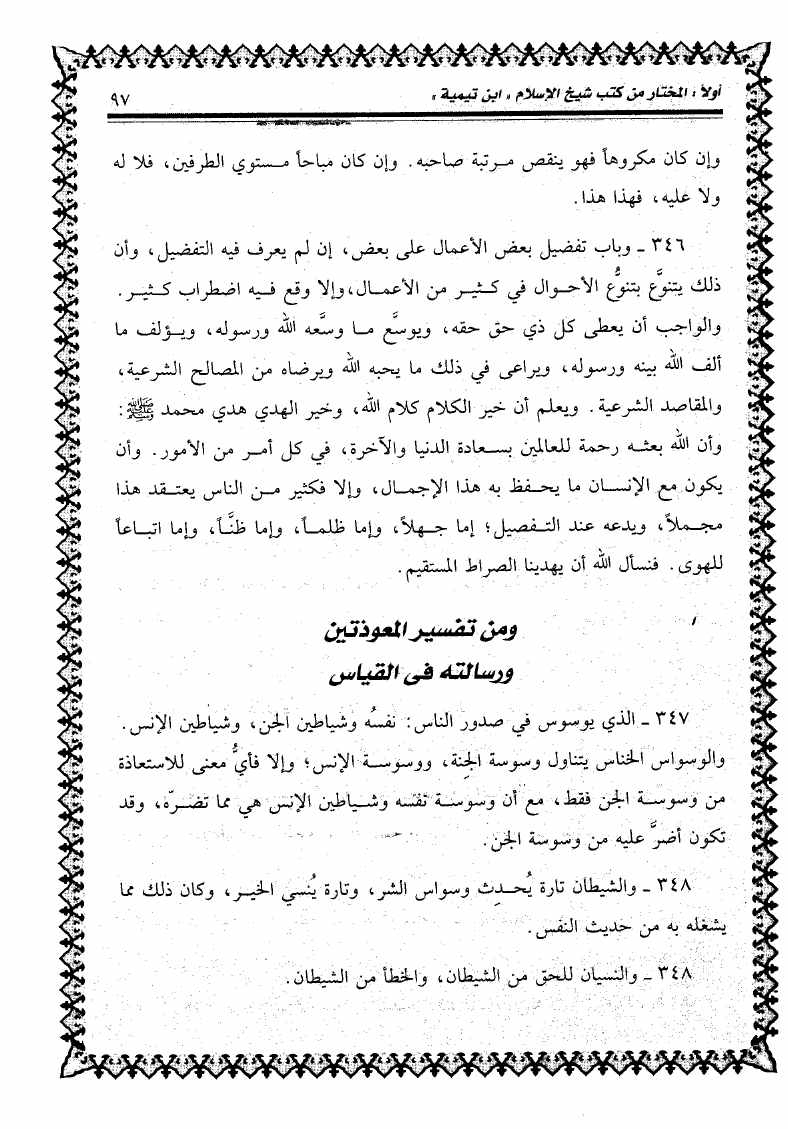 أولاً : المختار من كتب شيخ الإسلام « ابن تيمية »
٩٧
وإن كان مكروهاً فهو ينقص مرتبة صاحبه. وإن كان مباحاً مستوي الطرفين، فلا له
ولا عليه، فهذا هذا.
٣٤٦ ـ وباب تفضيل بعض الأعمال على بعض، إن لم يعرف فيه التفضيل، وأن
ذلك يتنوَّع بتنوُّع الأحوال في كثير من الأعمال،وإلا وقع فيه اضطراب كثير.
والواجب أن يعطى كل ذي حق حقه، ويوسَّع ما وسَّعه الله ورسوله، ويؤلف ما
ألف الله بينه ورسوله، ويراعى في ذلك ما يحبه الله ويرضاه من المصالح الشرعية،
والمقاصد الشرعية. ويعلم أن خير الكلام كلام الله، وخير الهدي هدي محمد ﷺ :
وأن الله بعثه رحمة للعالمين بسعادة الدنيا والآخرة، في كل أمر من الأمور. وأن
يكون مع الإنسان ما يحفظ به هذا الإجمال، وإلا فكثير من الناس يعتقد هذا
مجملاً، ويدعه عند التفصيل؛ إما جهلاً، وإما ظلماً، وإما ظنَّاً، وإما اتباعاً
للهوى. فنسأل الله أن يهدينا الصراط المستقيم.
ومن تفسير المعوذتين
ورسالته فى القياس
٣٤٧ ـ الذي يوسوس في صدور الناس: نفسُه وشياطين الجن، وشياطين الإنس.
والوسواس الخناس يتناول وسوسة الجنة، ووسوسة الإنس؛ وإلا فأيُّ معنى للاستعاذة
من وسوسة الجن فقط، مع أن وسوسة نفسه وشياطين الإنس هي مما تضرّه، وقد
تكون أضرَّ عليه من وسوسة الجن.
٣٤٨ ـ والشيطان تارة يُحدِث وسواس الشر، وتارة يُنسي الخير، وكان ذلك مما
يشغله به من حديث النفس.
٣٤٨ ـ والنسيان للحق من الشيطان، والخطأ من الشيطان.